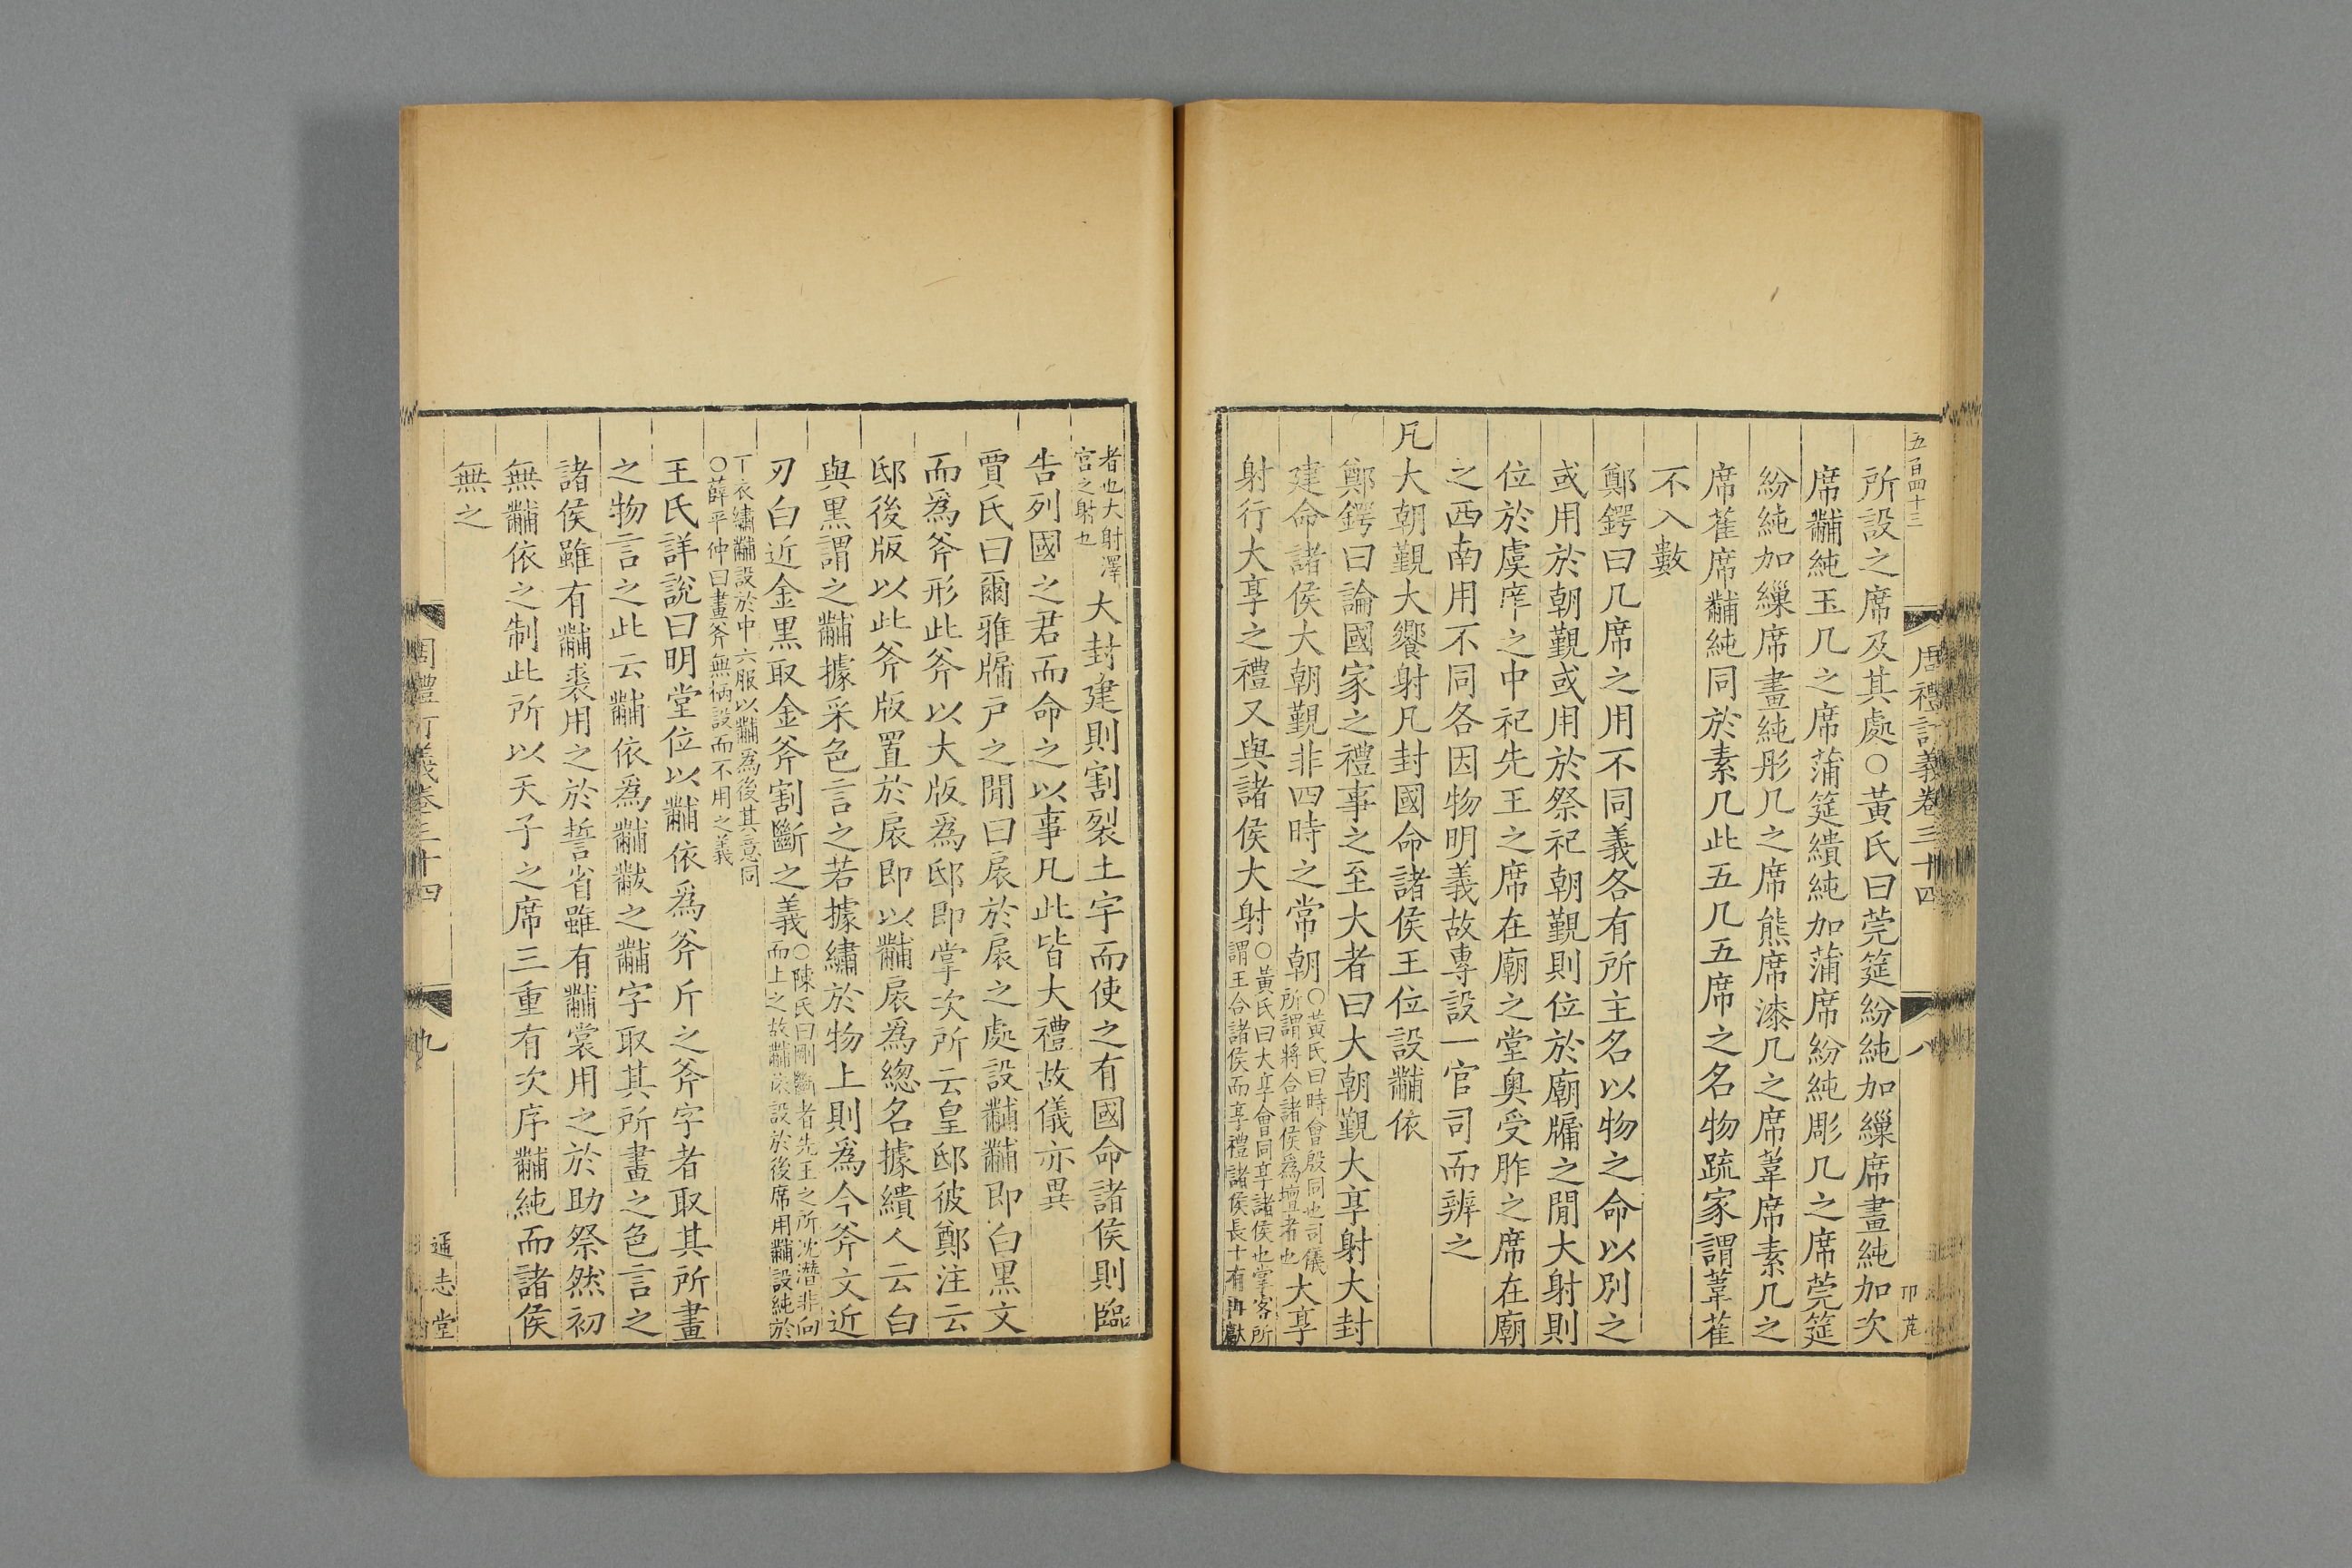 五百四十三
周禮訂義卷三十四
八
所設之席及其處○黃氏曰莞筵紛純加繅席畫純加次
席黼純玉几之席蒲筵繢純加蒲席紛純彫几之席莞筵
紛純加繅席畫純彤几之席熊席漆几之席葦席素几之
席萑席黼純同於素几此五几五席之名物疏家謂葦萑
不入數
鄭鍔曰几席之用不同義各有所主名以物之命以別之
或用於朝覲或用於祭祀朝覲則位於廟牖之閒大射則
位於虞庠之中祀先王之席在廟之堂奧受胙之席在廟
之西南用不同各因物明義故專設一官司而辨之
凡大朝覲大饗射凡封國命諸侯王位設黼依
鄭鍔曰論國家之禮事之至大者曰大朝覲大享射大封
建命諸侯大朝覲非四時之常朝○黃氏曰時會殷同也司儀所謂將合諸侯為壇者也大享
射行大享之禮又與諸侯大射○黃氏曰大享會同享諸侯也掌客所謂王合諸侯而享禮諸侯長十有再獻
者也大射澤宮之射也大封建則割裂土宇而使之有國命諸侯則臨
告列國之君而命之以事凡此皆大禮故儀亦異
賈氏曰爾雅牖戸之閒曰扆於扆之處設黼黼即白黑文
而爲斧形此斧以大版爲邸即掌次所云皇邸彼鄭注云
邸後版以此斧版置於扆即以黼扆爲總名據繢人云白
與黑謂之黼據采色言之若據繡於物上則爲今斧文近
刃白近金黑取金斧割斷之義○陳氏曰剛斷者先王之所沈潛非向而上之故黼依設於後席用黼設純於
丅衣繡黼設於中六服以黼爲後其意同○薛平仲曰畫斧無柄設而不用之義
王氏詳說曰明堂位以黼依爲斧斤之斧字者取其所畫
之物言之此云黼依爲黼黻之黼字取其所畫之色言之
諸侯雖有黼裘用之於誓省雖有黼裳用之於助祭然初
無黼依之制此所以天子之席三重有次序黼純而諸侯
無之
周禮訂義卷三十四
九
通志堂